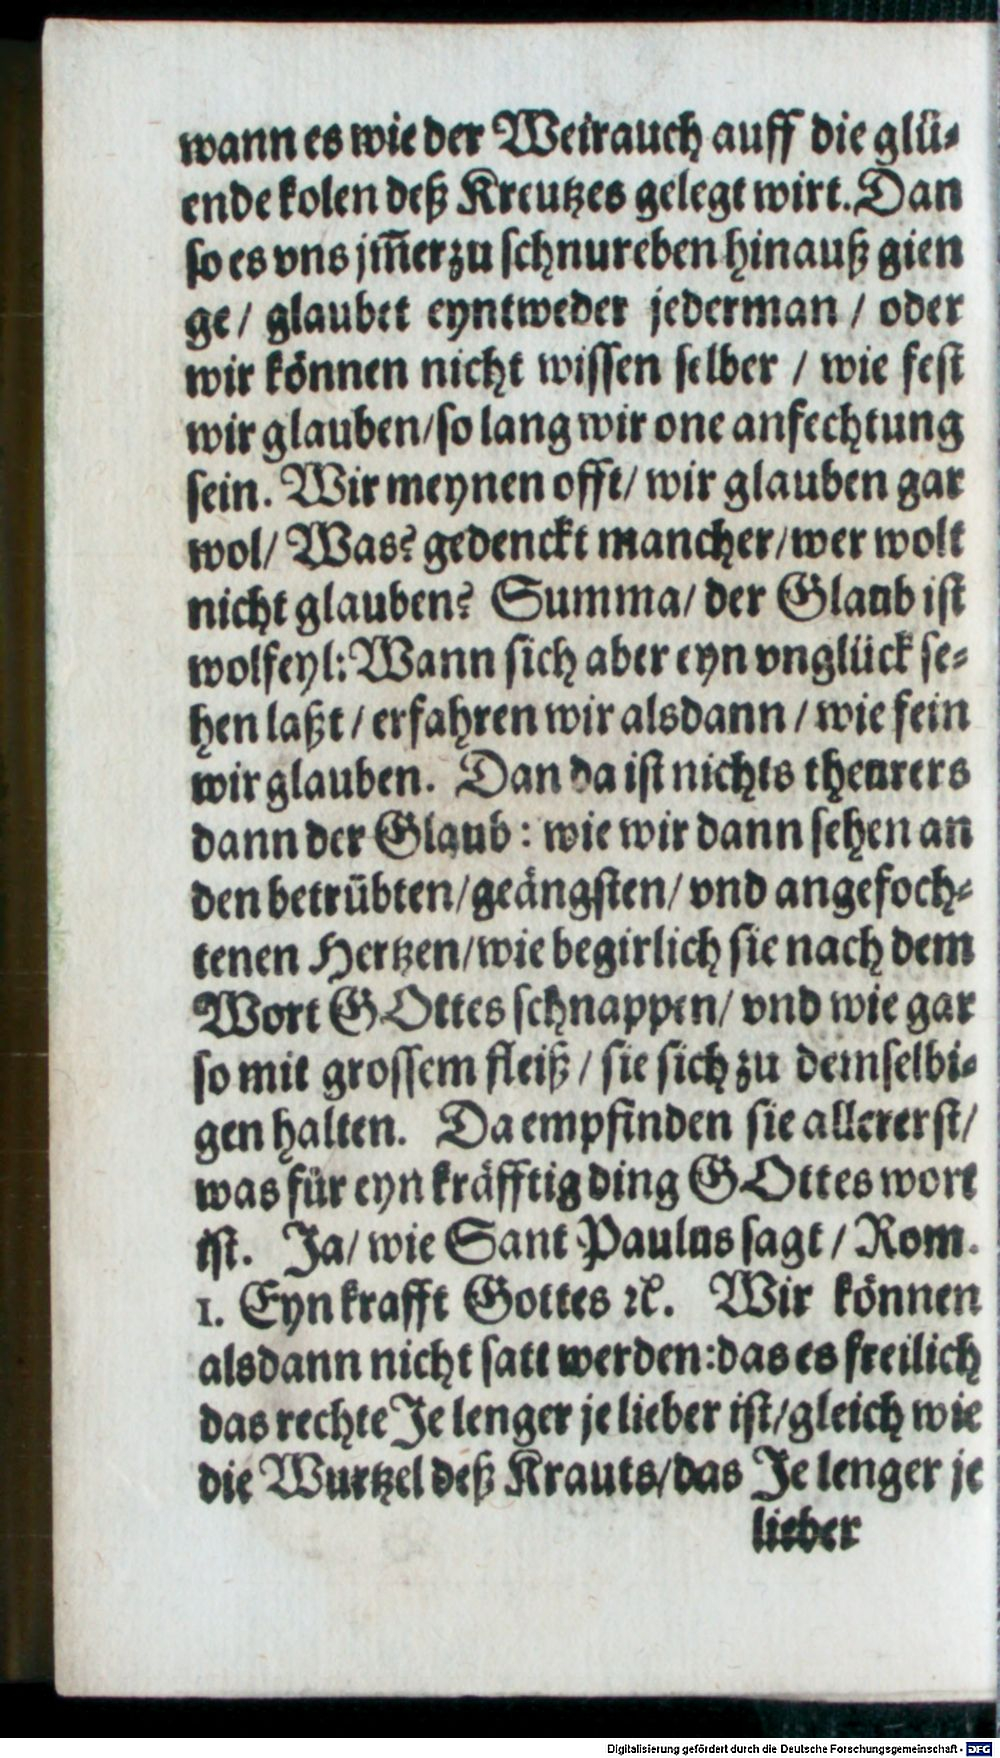 wann es wie der Weirauch auff die glü⸗
ende kolen deß Kreutzes gelegt wirt. Dan
so es vns jm̃erzu schnureben hinauß gien
ge / glaubet eyntweder jederman / oder
wir können nicht wissen selber / wie fest
wir glauben / so lang wir one anfechtung
sein. Wir meynen offt / wir glauben gar
wol / Was? gedenckt mancher / wer wolt
nicht glauben? Summa / der Glaub ist
wolfeyl: Wann sich aber eyn vnglück se⸗
hen laßt / erfahren wir alsdann / wie fein
wir glauben. Dan da ist nichts theurers
dann der Glaub : wie wir dann sehen an
den betrübten / geängsten / vnd angefoch⸗
tenen Hertzen / wie begirlich sie nach dem
Wort GOttes schnappen / vnd wie gar
so mit grossem fleiß / sie sich zu demselbi⸗
gen halten. Da empfinden sie allererst /
was für eyn kräfftig ding GOttes wort
ist. Ja / wie Sant Paulus sagt / Rom.
1. Eyn krafft Gottes ꝛc. Wir können
alsdann nicht satt werden: das es freilich
das rechte Je lenger je lieber ist / gleich wie
die Wurtzel deß Krauts / das Je lenger je
lieber
Digitalisierung gefördert durch die Deutsche Forschungsgemeinschaft - DFG